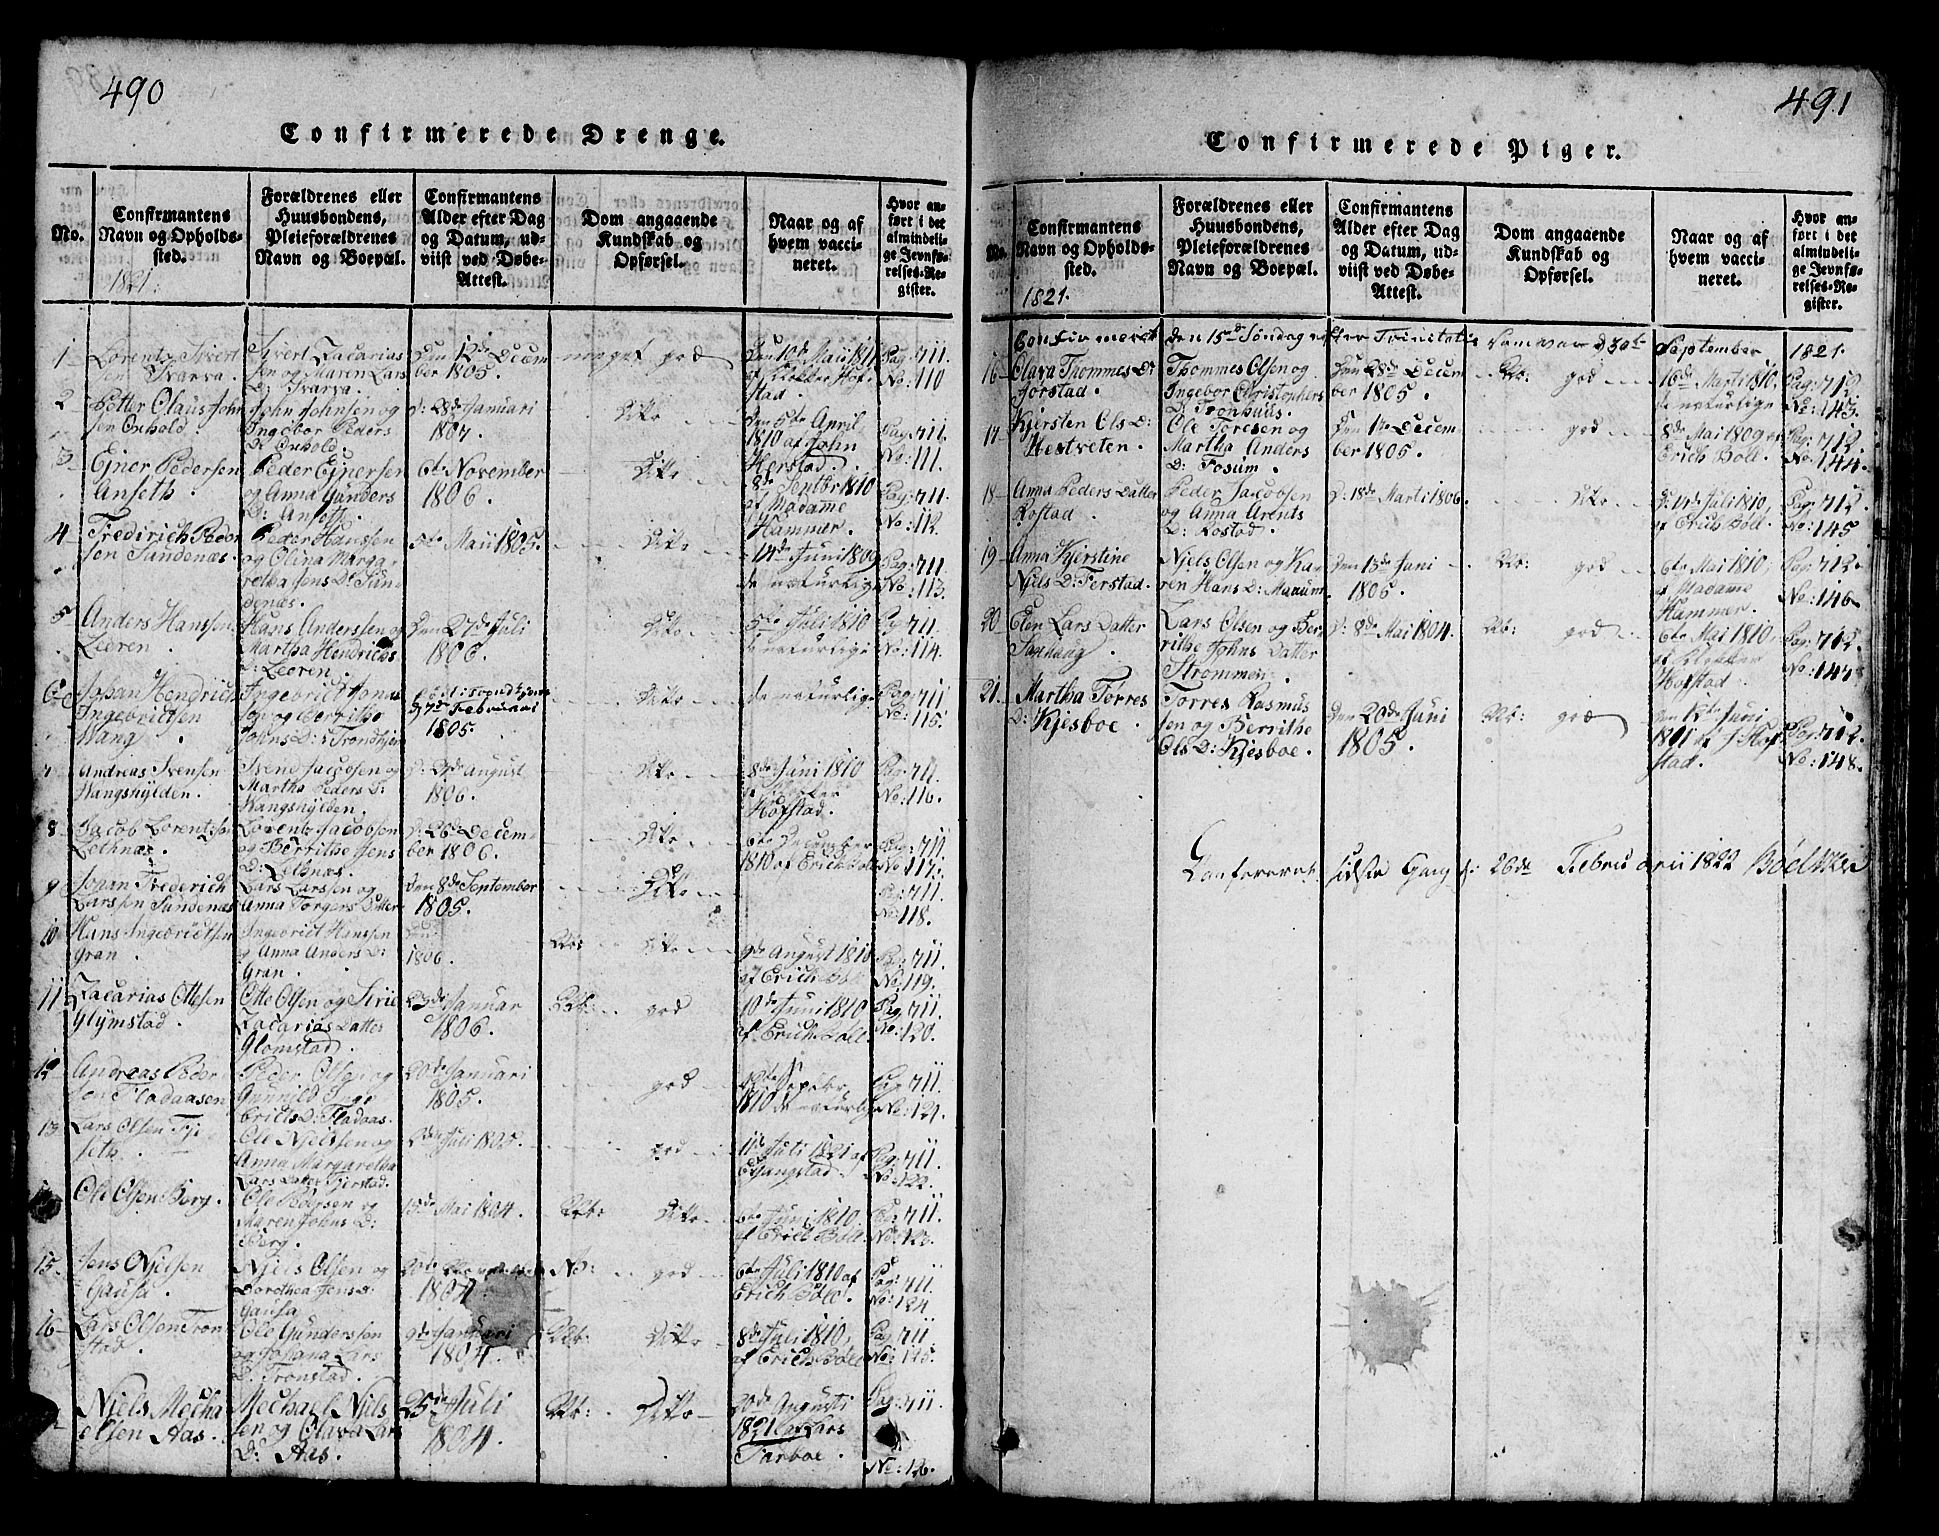 490
Confirmerede Drenge.
No.
Confirmantens
Navn og Opholds-
sted.
1821.
Forældrenes eller
Huusbondens,
Pleieforældrenes
Navn og Boepæl.
Confirmantens
Alder efter Dag
og Datum, ud-
viist ved Døbe-
Attest.
Dom angaaende
Kundskab og
Opførsel.
Naar og af
hvem vacci-
neret.
Hvor an-
ført i det
almindeli-
ge Jevnfø-
relses-Re-
gister.
1
Lorentz Sivert
sen Tvarva.
Sivert Zacarias
sen og Maren Lars
D: Tvarva.
Den 12de Decem
ber 1805.
meget god
Den 10de Maii 1811
af Klokker Hof-
stad.
Pag: 711.
No: 110
2
Petter Claus John
sen Oxhold.
John Johnsen og
Ingebor Peders
D: Oxhold.
D: 28de Januari
1807.
Ditto
Den 5te April
1810 af John
Herstad.
Pag: 711.
No: 111.
3
Ejner Pedersen
Anseth.
Peder Ejnersen
og Anna Gunders
D: Anseth.
6te November
1806.
Ditto
8de Sentbr 1810
af Madame
Hammer.
Pag: 711.
No: 112.
4
Fredrich Peder
sen Sundenæs.
Peder Hansen
og Olina Marga-
retha Jens D: Sun-
denæs.
5te Maii 1805.
Ditto
14de Juni 1809
de naturlige
Pag: 711.
No: 113.
5
Anders Hanssen
Leeren.
Hans Anderssen og
Martha Hendrichs
D: Leeren.
Den 27de Juli
1806.
Ditto
5te Juli 1810
de naturlige
Pag: 711.
No: 114.
6
Johan Hendrich
Ingebrictsen
Wang.
Ingebrict Jonas
sen og Berrithe
Johns D: Trondhjem
D 7de Februari
1805.
Ditto
de naturlige
Pag: 711
No: 115.
7
Andreas Svensen
Wangshylden.
Svend Jacobsen og
Martha Peders D:
Wangshylden.
D: 24de August
1806.
Ditto
8de Juni 1810
Hofstad.
Pag: 711.
No: 116.
8
Jacob Lorentzsen
Lethnæs.
Lorentz Jacobsen
og Berrithe Jens
D: Lethnæs.
D: 26de Decem-
ber 1806.
Ditto
6te December
1810 af Erich Boll
Pag: 711.
No: 117.
9
Johan Frederich
Larssen Sundenæs
Lars Larsen og
Anna Torgers Datter
Den 8de September
1805.
Ditto
Pag: 711.
No: 118.
10
Hans Ingebrictsen
Gran.
Ingebrict Hanssen
og Anna Anders D:
Gran.
1806.
Ditto
9de August 1810
af Erich Boll
Pag: 711.
No: 119.
11
Zacarias Ottesen
Glymstad.
Otte Olsen og Sirie
Zacarias Datter
Glomstad.
23de Januar
1806.
god
10de Juni 1810
af Erich Boll.
Pag: 711.
No: 120.
12
Andreas Peder
sen Fladaasen
Peder Olsen og
Gunnild Inge
bricts D: Fladaas.
20de Januari
1805.
god
1810 de naturlige
Pag: 711.
No: 121.
13
Lars Olsen Fji
seth.
Ole Njelssen og
Anna Margaretha
Lars Datter Fjerstad.
2de Juli 1805.
god
11te Juli 1821 af
Pag: 711.
No: 122.
Ole Olsen Borg.
Ole Pedersen og
Maren Johns D:
Berg.
15de Mai 1804.
Ditto
6te Juni 1810
af Erich Boll.
Pag: 711.
No: 123.
15
Jens Njelsen
Gausa.
Njels Olsen og
Dorothea Jens D:
Gausa
1804.
god
6te Juli 1810 af
Erich Boll.
Pag: 711.
No: 124
16
Lars Olsen Tron
stad.
Ole Gunderssen
og Johana Lars
D: Tronstad.
9de Januari
1804.
Ditto
8de Juli 1810,
af Erich Boll
Pag: 711
No: 125.
Njels Mecha
elsen Aas.
Mechael Njels
sen og Olava Lars
D: Aas.
25de Juli
1804.
Ditto
20de Augusti
1821 af Lars
Tarboe.
Pag: 711
No: 126.
491
Confirmerede Piger.
No.
Confirmantens
Navn og Opholds-
sted.
1821.
Forældrenes eller
Huusbondens,
Pleieforældrenes
Navn og Boepæl.
Confirmantens
Alder efter Dag
og Datum, ud-
viist ved Døbe-
Attest.
Dom angaaende
Kundskab og
Opførsel.
Naar og af
hvem vacci-
neret.
Hvor an-
ført i det
almindeli-
ge Jevnfø-
relses-Re-
gister.
Confirmeret den 15de Søndag efter Trinitatis som var d 30te September 1821.
16
Olava Thommes D:
Forstad.
Thommes Olsen og
Ingebor Christophers
D: Tronhuus.
Den 28de Decem
ber 1805.
god
16de Marti 1810,
de naturlige
Pag: 712.
No: 143.
17
Kjersten Ols D:
Hestveten
Ole Toresen og
Martha Anders
D: Fosum.
Den 17de Decem
ber 1805.
god
8de Mai 1809 af
Erich Boll.
Pag: 712.
No: 144.
18
Anna Peders Datter
Rostad
Peder Jacobsen
og Anna Arents
D: Rostad.
D: 18de Marti 1806.
Ditto
D: 14de Juli 1810,
af Erich Boll.
Pag: 712.
No: 145
19
Anna Kjerstine
Njels D: Ferstad.
Njels Olsen og Ka-
ren Hans D: Manum
Den 13de Juni
1805.
god
6te Mai 1810,
af Madame
Hammer.
Pag: 712.
No: 146
20
Elen Lars Datter
Lars Olsen og Ber-
rithe Johns Datter
Strømmen.
D: 8de Mai 1804.
god
6te Mai 1810,
af Klokker
Hofstad.
Pag: 712.
No: 147
21.
Martha Torres
D: Kjesboe.
Torres Rasmus
sen og Berrithe
Ols D: Kjesboe.
Den 20de Juni
1805.
god
Den 12te Juni
1811 af J. Hof
stad.
Pag: 712.
No: 148.
Confereret sidste Gang d: 26de Februarii 1822